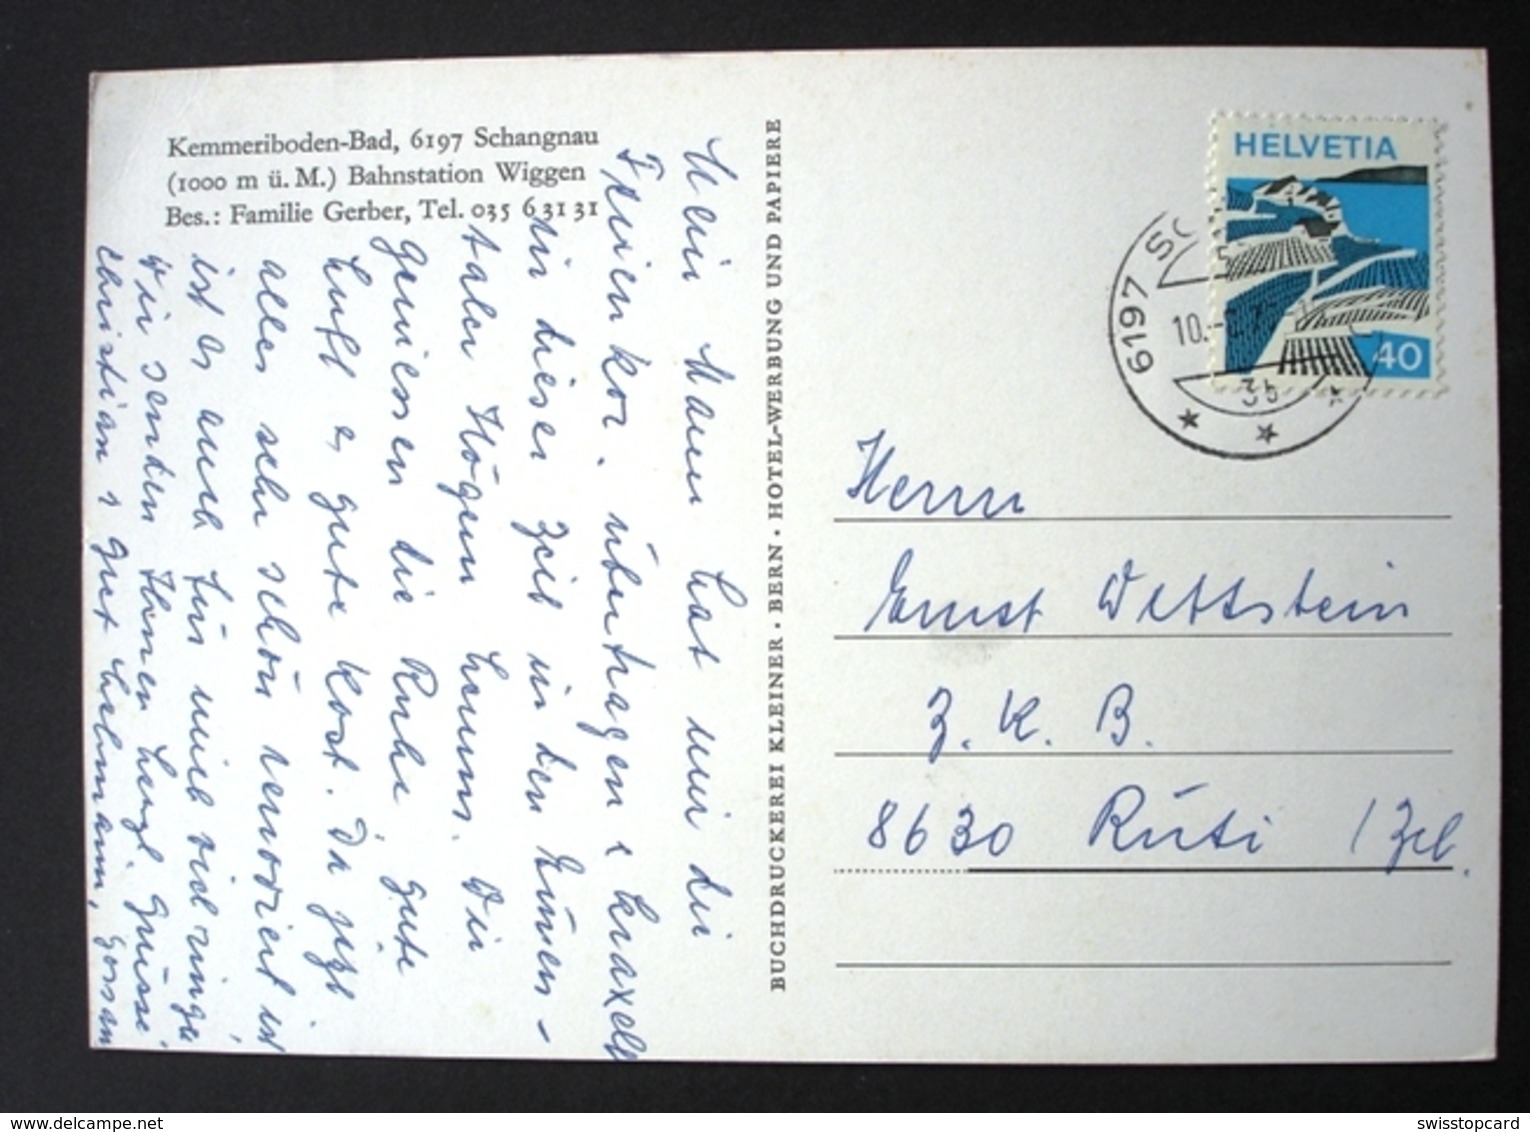 Kemmeriboden-Bad, 6197 Schangnau
(1000 m ü. M.) Bahnstation Wiggen
Bes.: Familie Gerber, Tel. 035 6 31 31
Mein Mann hat mir die
Ferien kor. übertragen & kraxelt
in dieser Zeit in den Emmen-
taler Högern herum. Wir
geniessen die Ruhe gute
Luft & gute Kost. Da jetzt
alles sehr schön renoviert ist
ist es auch für mich
Wir senden Ihnen herzl Grüsse
Christian & Gret
BUCHDRUCKEREI KLEINER · BERN · HOTEL-WERBUNG UND PAPIERE
HELVETIA
40
6197
10.
Herrn
Ernst Wettstein
Z. K. B.
8630 Rüti / Zch.
delcampe.net
swisstopcard